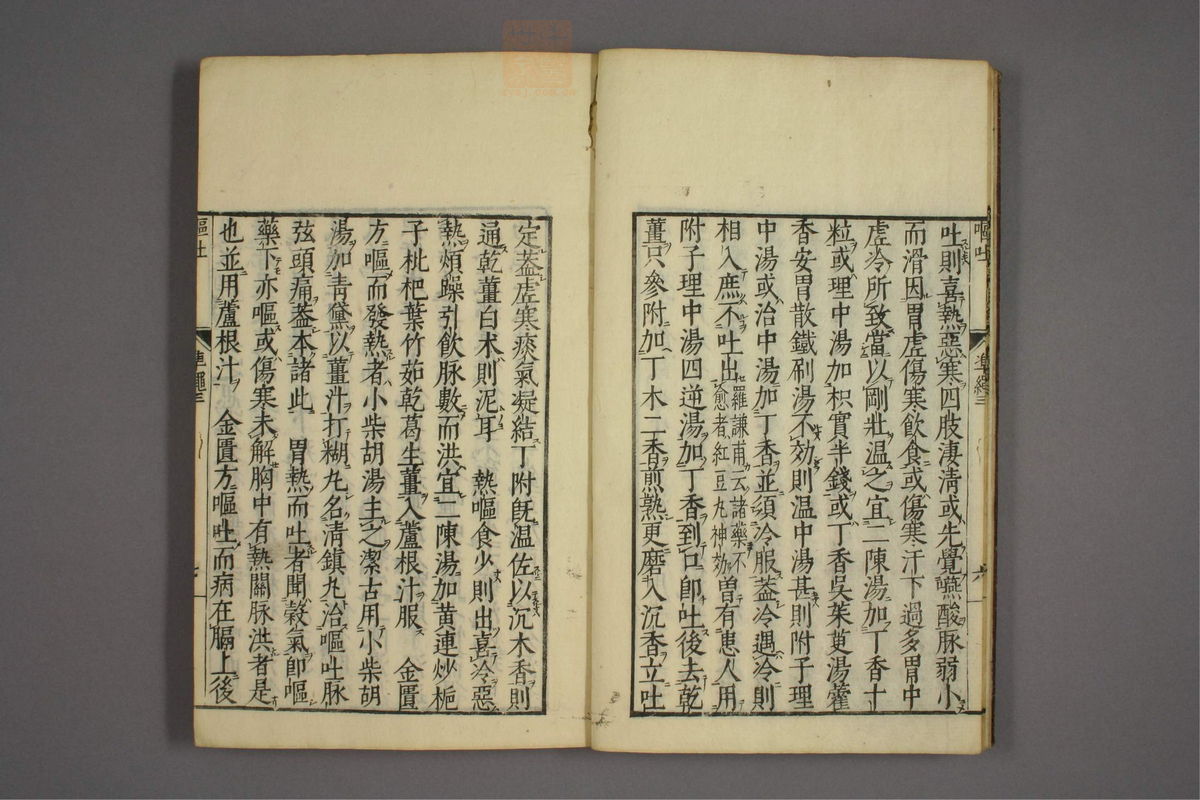 吐則喜熱惡寒四肢淒淸或先覺嚥酸脉弱小
而滑因胃虛傷寒飲食或傷寒汗下過多胃中
虛冷所致當以剛壯温之宜二陳湯加丁香十
粒或理中湯加枳實半錢或丁香吳茱萸湯藿
香安胃散鐵刷湯不効則温中湯甚則附子理
中湯或治中湯加丁香並須冷服葢冷遇冷則
相入庶不吐出羅謙甫云諸藥不愈者紅豆丸神効曽有患人用
附子理中湯四逆湯加丁香到口卽吐後去乾
薑只參附加丁木二香煎熟更磨入沉香立吐
嘔吐
準繩三
六
定葢虛寒痰氣凝結丁附旣温佐以沉木香則
通乾薑白术則泥耳 熱嘔食少則出喜冷惡
熱煩躁引飲脉數而洪宜二陳湯加黄連炒梔
子枇杷葉竹茹乾葛生薑入蘆根汁服 金匱
方嘔而發熱者小柴胡湯主之潔古用小柴胡
湯加青黛以薑汁打糊丸名淸鎮丸治嘔吐脉
弦頭痛葢本諸此 胃熱而吐者聞穀氣卽嘔
藥下亦嘔或傷寒未解胸中有熱關脉洪者是
也並用蘆根汁 金匱方嘔吐而病在膈上後
嘔吐
準繩三